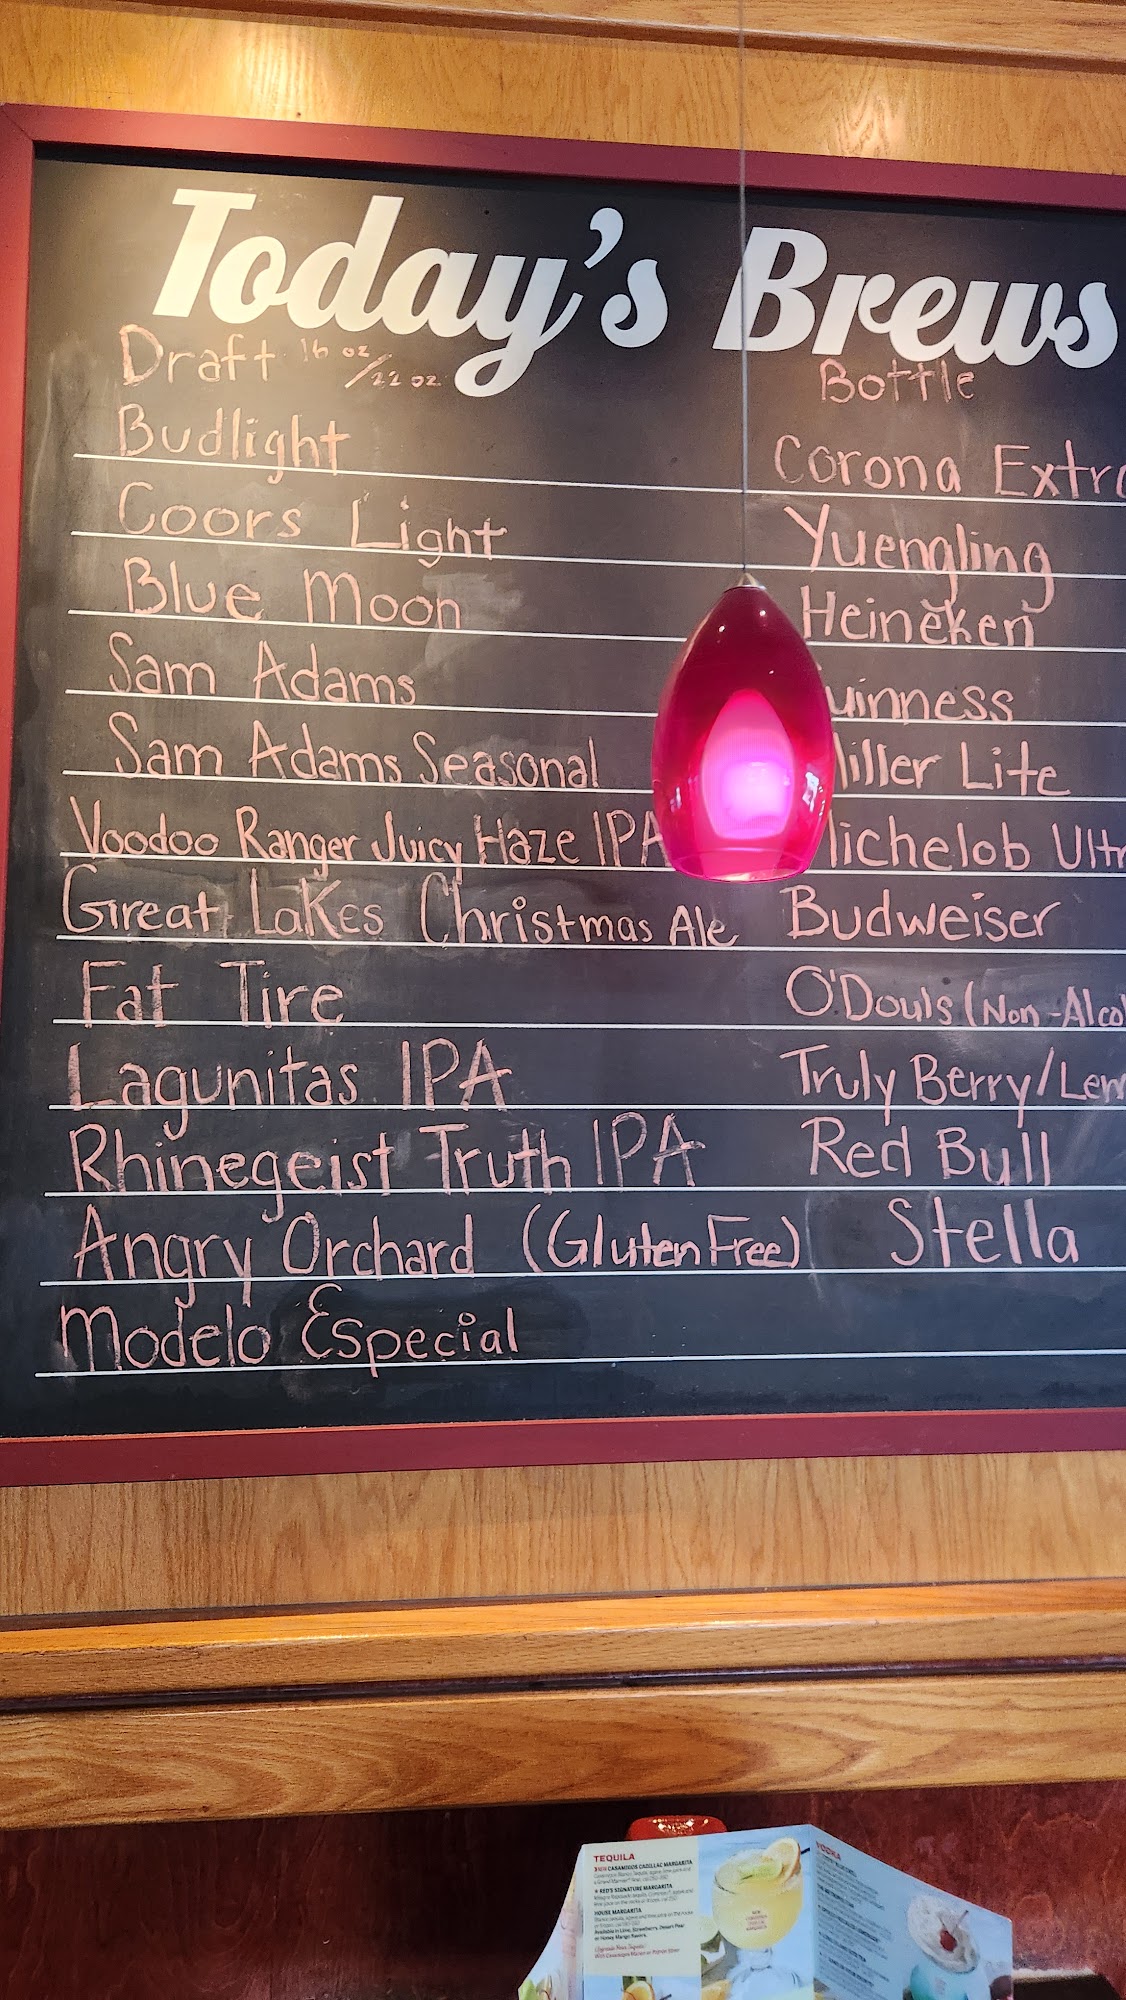 Today's Brews
Draft 16 oz/22 oz
Budlight
Coors Light
Blue Moon
Sam Adams
Sam Adams Seasonal
Voodoo Ranger Juicy Haze IPA
Great Lakes Christmas Ale
Fat Tire
Lagunitas IPA
Rhinegeist Truth IPA
Angry Orchard (Gluten Free)
Modelo Especial
Bottle
Corona Extra
Yuengling
Heineken
uinness
iller Lite
lichelob Ultr
Budweiser
O'Douls (Non-Alco
Truly Berry/Lem
Red Bull
Stella
TEQUILA
CASAMIGOS CADILLAC MARGARITA
RED'S SIGNATURE MARGARITA
HOUSE MARGARITA
VODKA